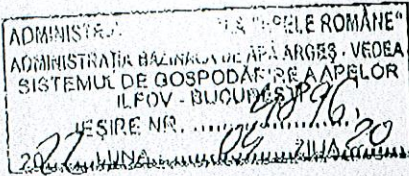 ADMINIST "APELE ROMÂNE"
ADMINISTRAȚIA BAZINALĂ DE APĂ ARGEȘ - VEDEA
SISTEMUL DE GOSPODĂRIRE A APELOR
ILFOV - BUCUREȘTI
IEȘIRE NR.
2022 LUNA 09 ZIUA 20